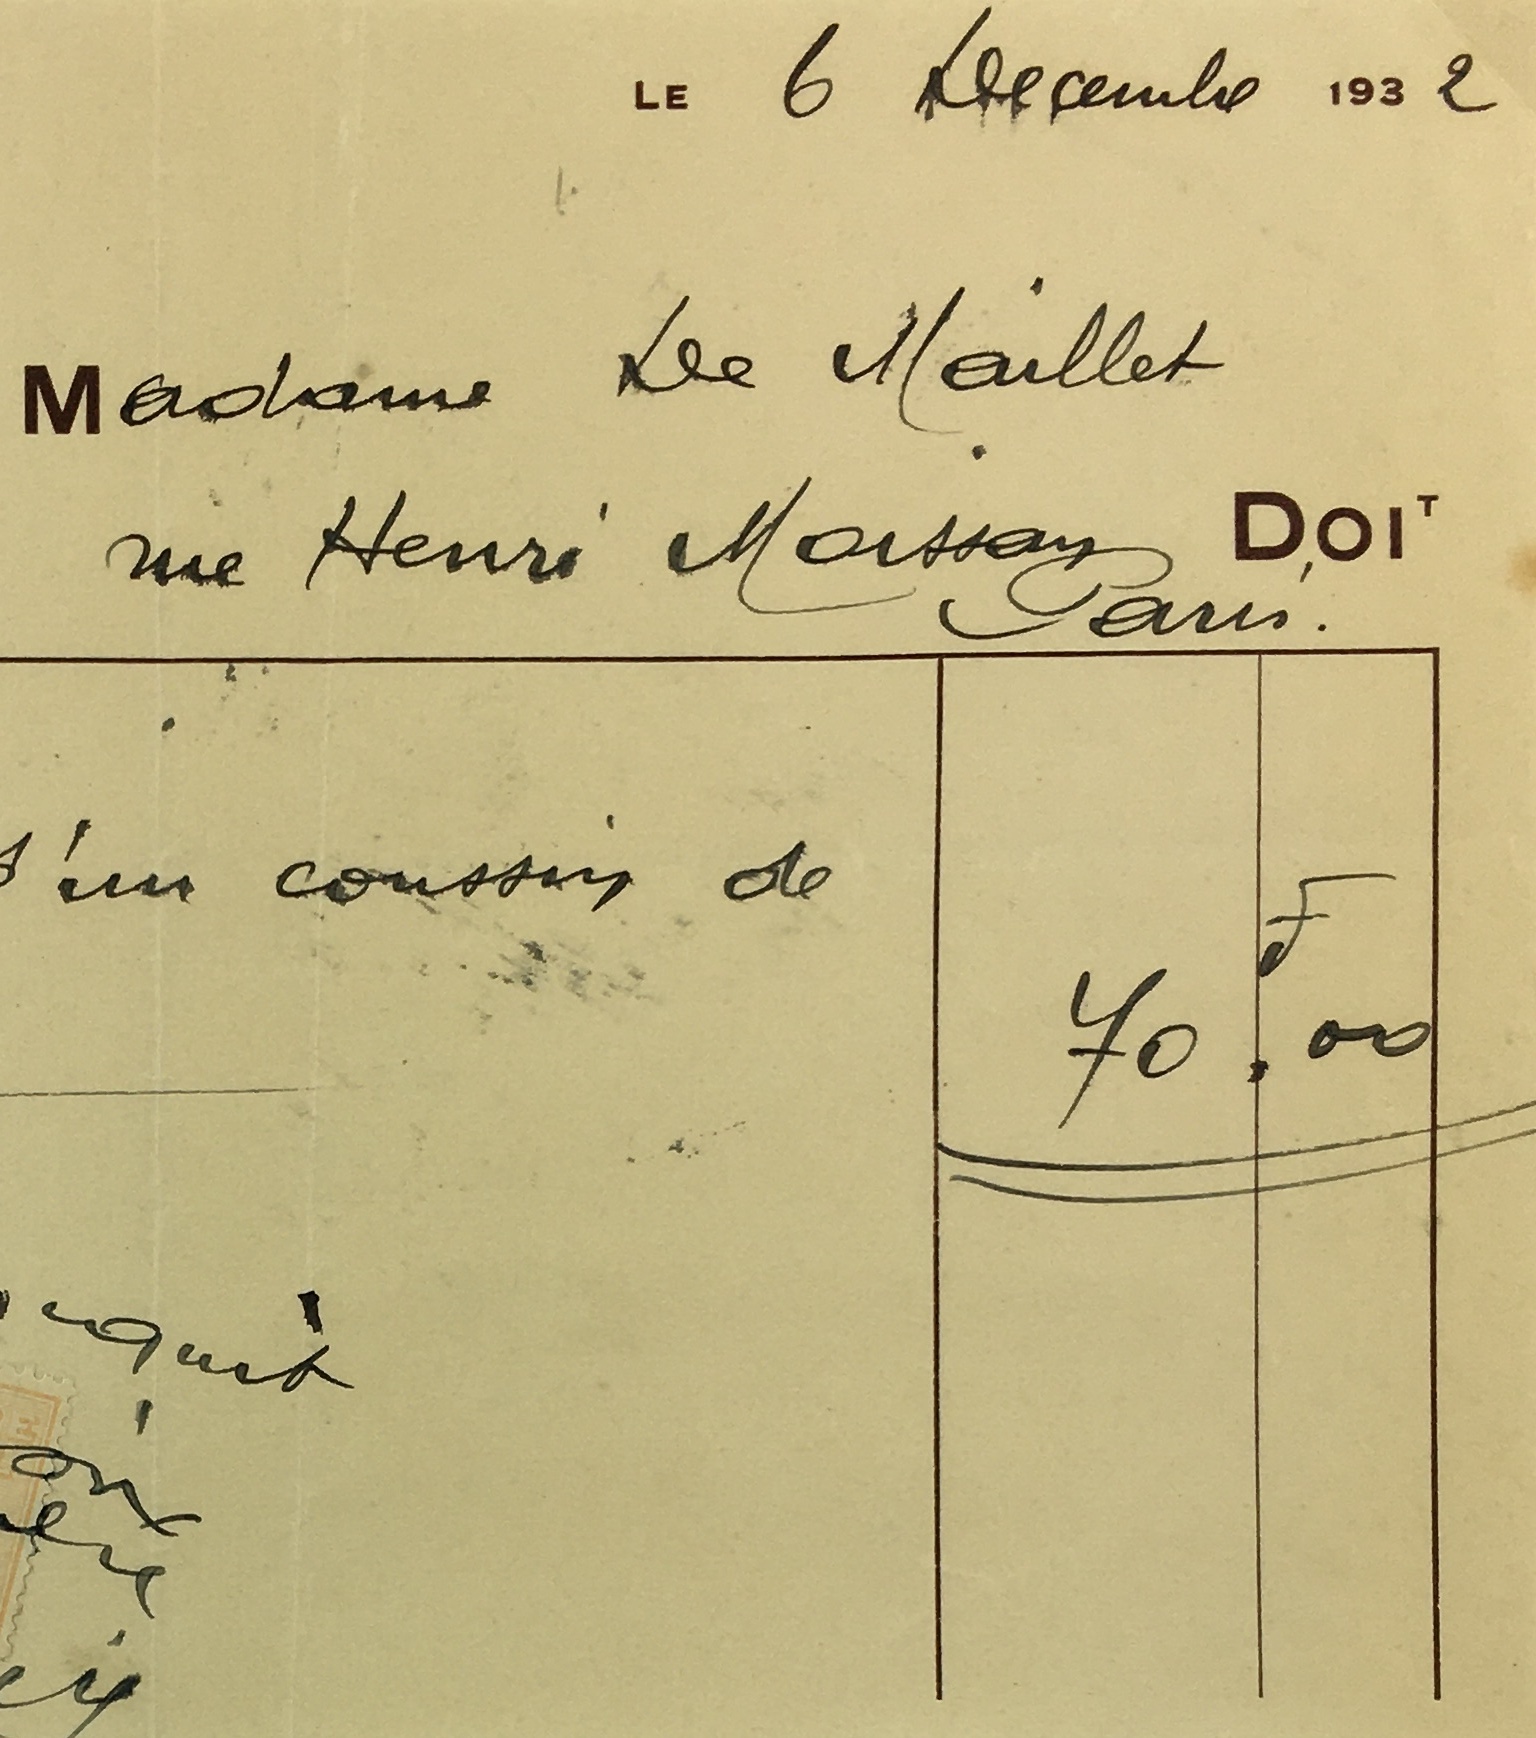 LE 6 Decembre 1932
Madame De Maillet
rue Henri Moissan DOIT
Paris.
d'un coussin de
F
70.00
acquit